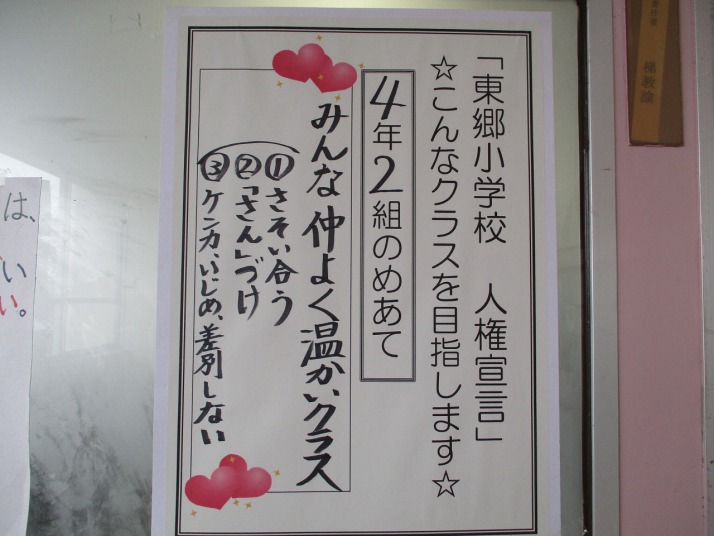 「東郷小学校　人権宣言」
☆こんなクラスを目指します☆
4年2組のめあて
みんな仲よく温かいクラス
①さそい合う
②「さん」づけ
③ケンカ、いじめ、差別しない
は、
い
い。